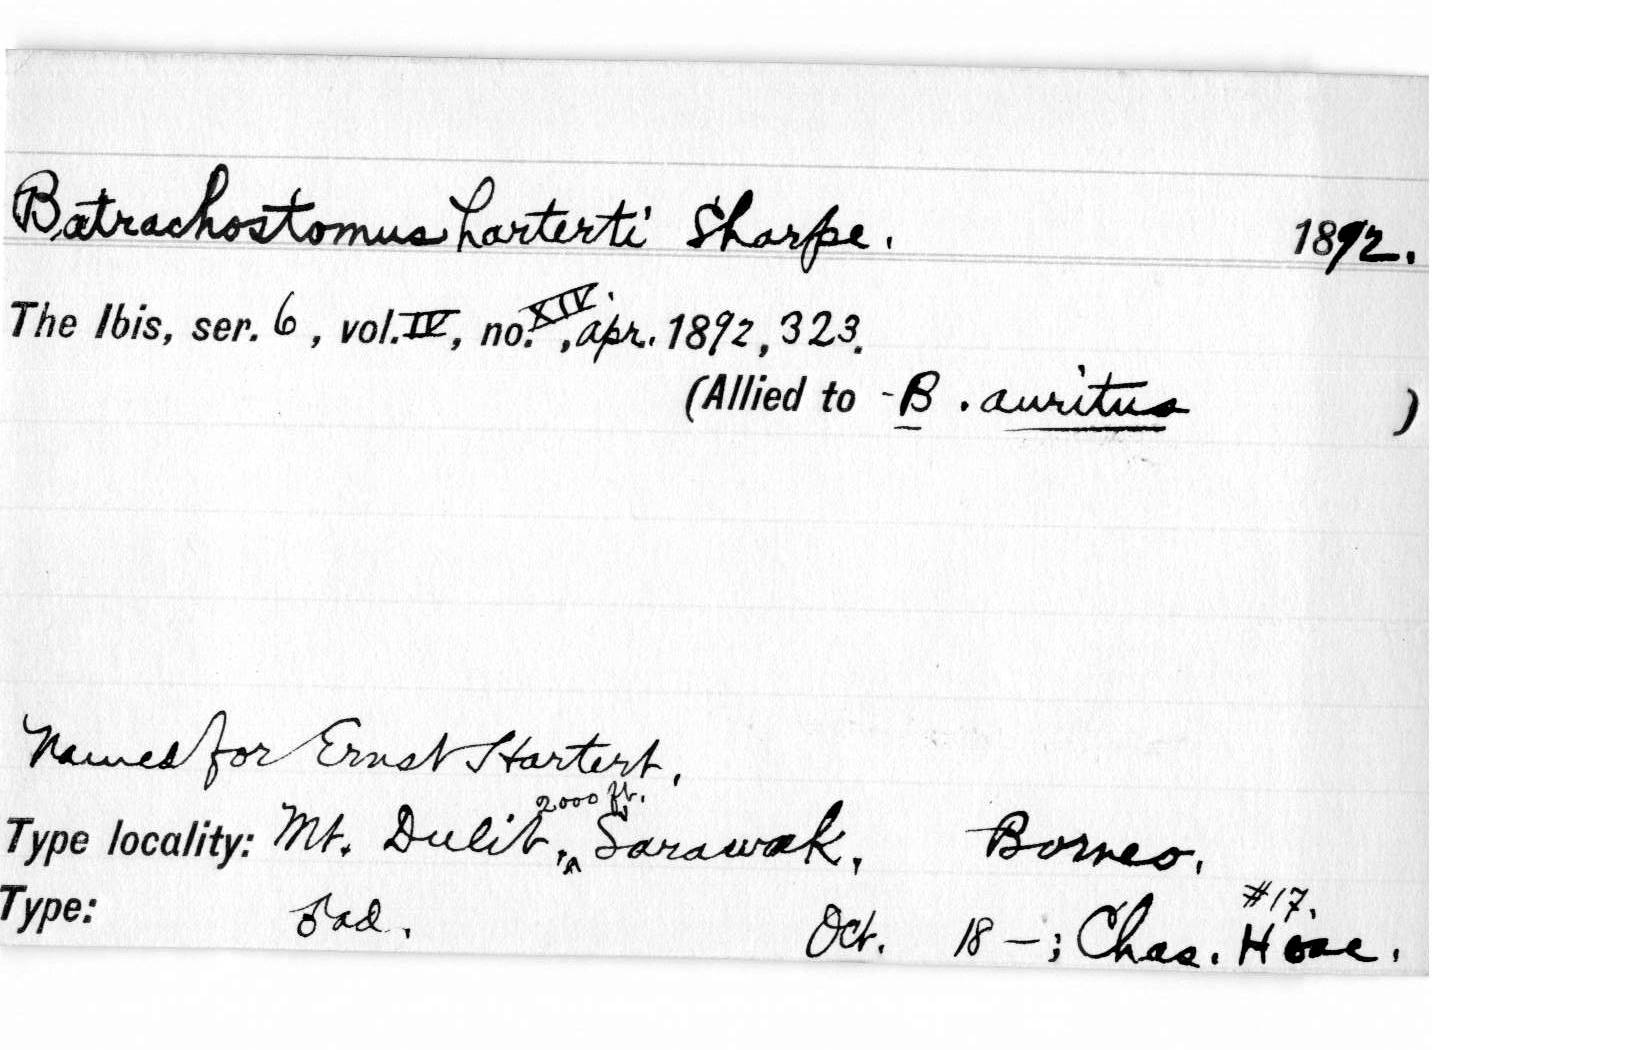 Batrachostomus harterti Sharpe. 1892.
The Ibis, ser. 6, vol. IV, no. XIV., apr. 1892, 323.
(Allied to B. auritus )
Named for Ernst Hartert.
2000 ft.
Type locality: Mt. Dulit, ^ Sarawak, Borneo.
#17.
Type: ad. Oct. 18 —; Chas. Hose.